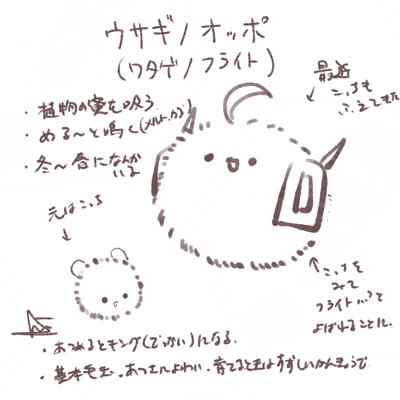 ウサギノオッポ
(ワタゲノフライト)
最近
こっちも
ふえてきた
・植物の蜜を吸う
・める〜と鳴く(メルト、か?)
・冬〜春になんか
いる
元はこっち
こっちを
みて
フライト…?と
よばれることに。
・あつめるとキング(でっかい)になる.
・基本毛玉。あつさによわい。育てるときはすずしいかんきょうで